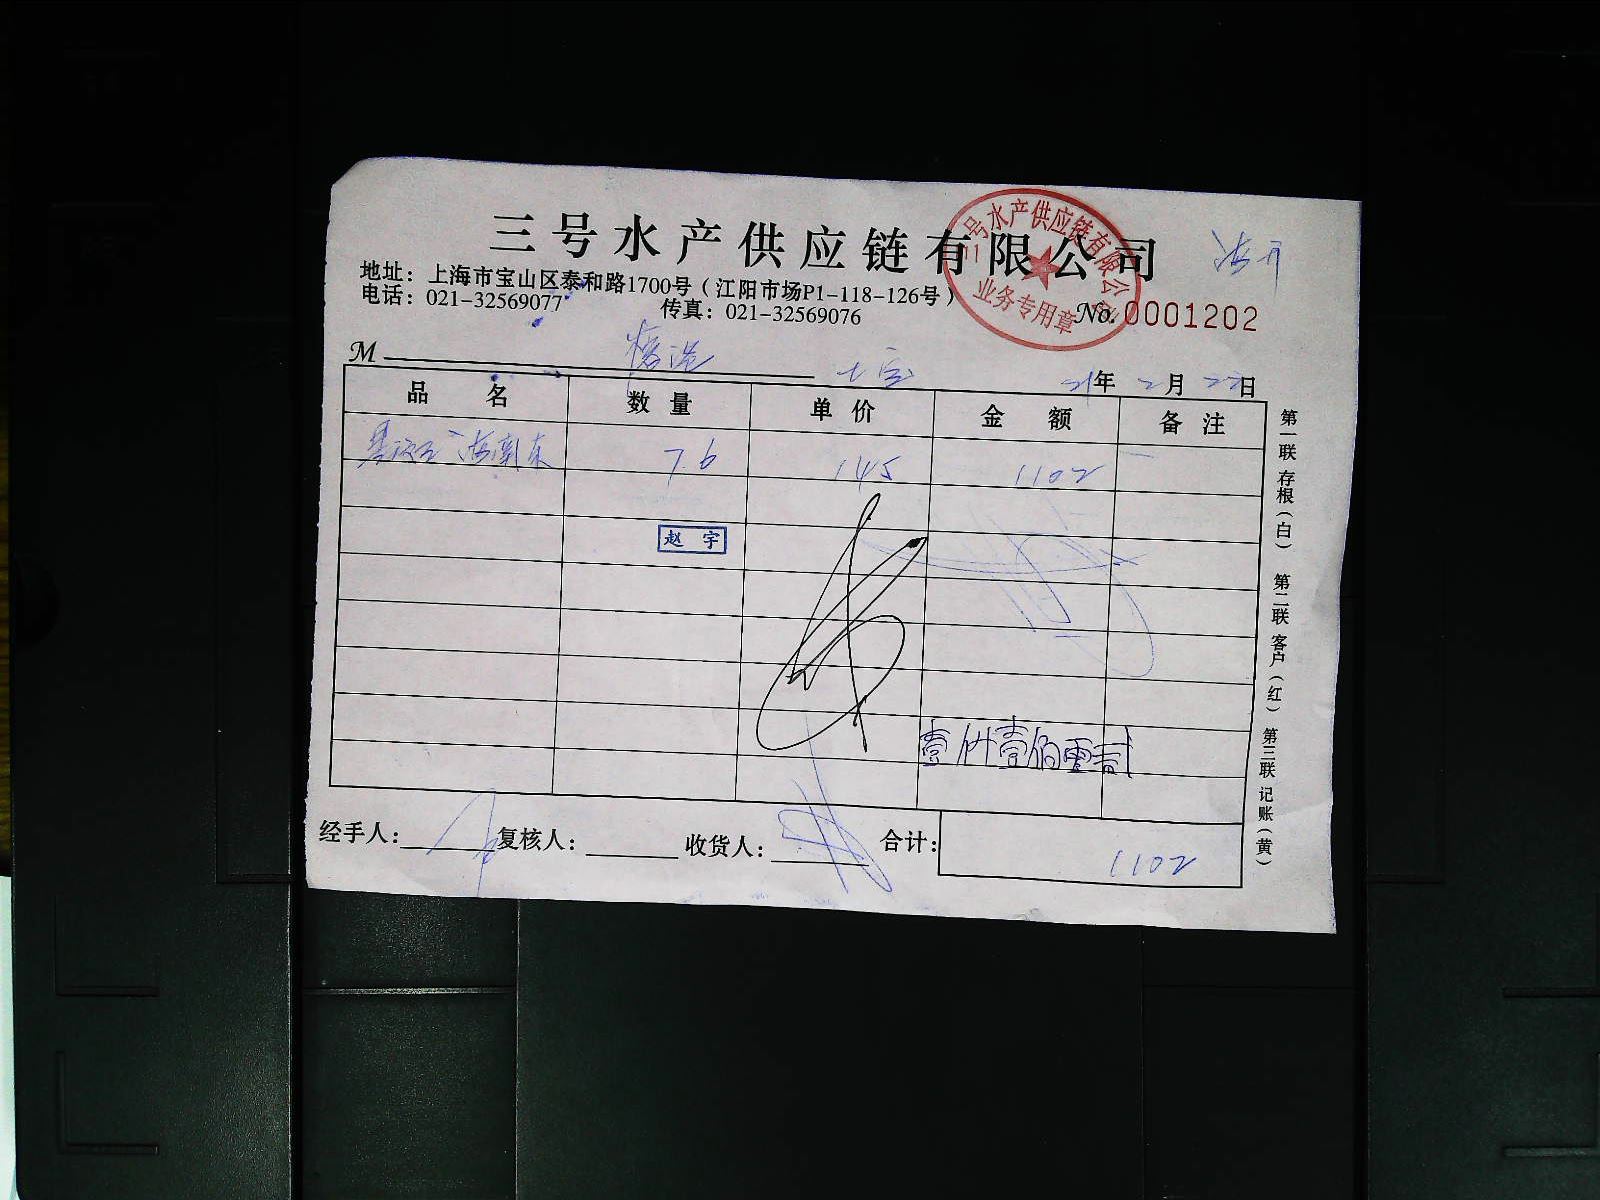 三号水产供应链有限公司
三号水产供应链有限公司
业务专用章
地址：上海市宝山区泰和路1700号（江阳市场P1-118-126号）
电话：021-32569077 传真：021-32569076
No. 0001202
M
21年 2月 22日
品名 数量 单价 金额 备注
7.6 145 1102
赵宇
壹仟壹佰零贰
经手人： 复核人： 收货人： 合计： 1102
第一联 存根（白） 第二联 客户（红） 第三联 记账（黄）